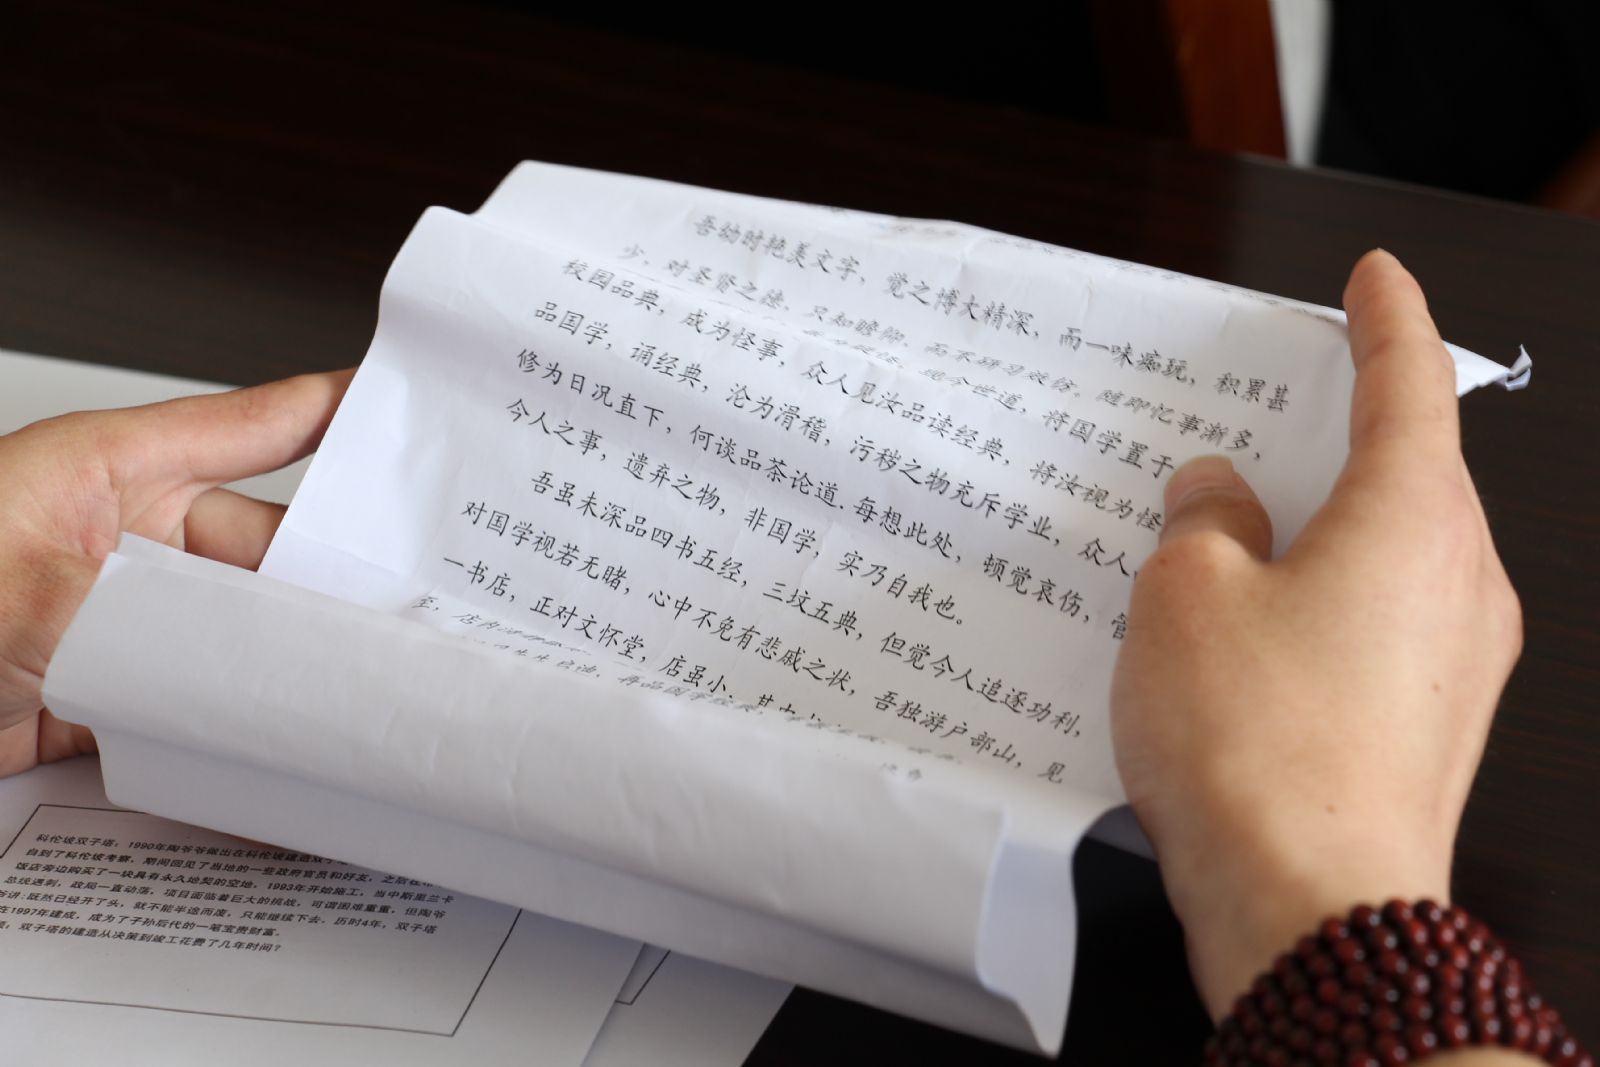 吾幼时艳美文字，觉之博大精深，而一味痴玩，积累甚
少，对圣贤之德，只知瞻仰，而不研习效仿。随即忆事渐多，
现今世道，将国学置于
校园品典，成为怪事，众人见汝品读经典，将汝视为怪
品国学，诵经典，沦为滑稽，污秽之物充斥学业，众人
修为日况直下，何谈品茶论道.每想此处，顿觉哀伤，
今人之事，遗弃之物，非国学，实乃自我也。
吾虽未深品四书五经，三坟五典，但觉今人追逐功利，
对国学视若无睹，心中不免有悲戚之状，吾独游户部山，见
一书店，正对文怀堂，店虽小，其中
至，店内
再品国学经典，
科伦坡双子塔：1990年陶爷爷做出在科伦坡建造双子塔
自到了科伦坡考察，期间回见了当地的一些政府官员和好友，之后在
饭店旁边购买了一块具有永久地契的空地，1993年开始施工，当中斯里兰卡
总统遇刺，政局一直动荡，项目面临着巨大的挑战，可谓困难重重，但陶爷
爷讲:既然已经开了头，就不能半途而废，只能继续下去．历时4年，双子塔
在1997年建成，成为了子孙后代的一笔宝贵财富.
：双子塔的建造从决策到竣工花费了几年时间？